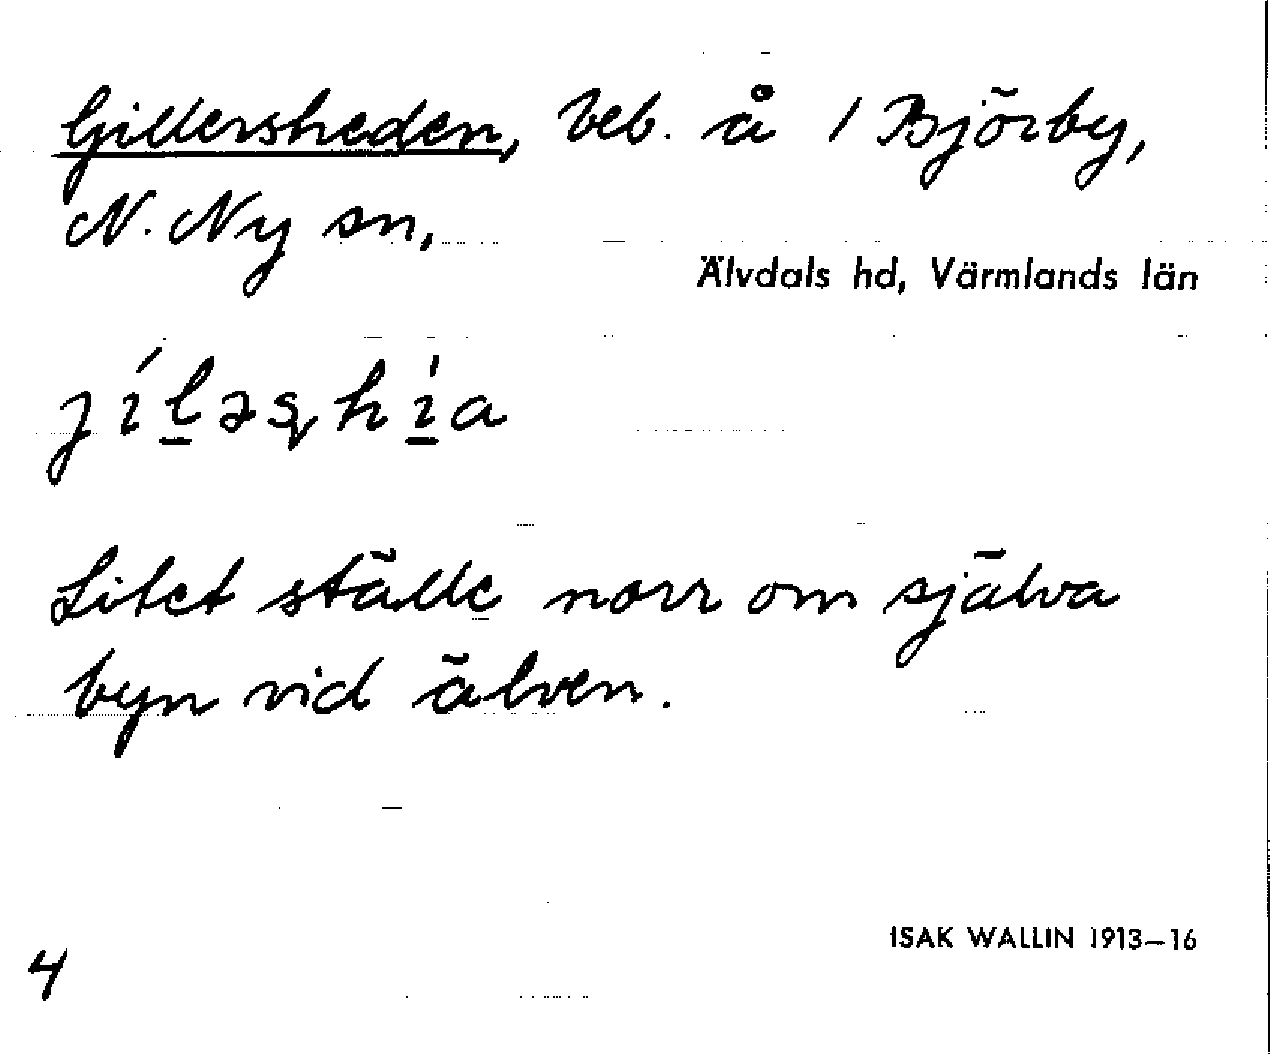 Gillersheden, beb. å 1 Björby,
N. Ny sn,
Älvdals hd, Värmlands län
Litet ställe norr om själva
byn vid älven.
ISAK WALLIN 1913–16
4